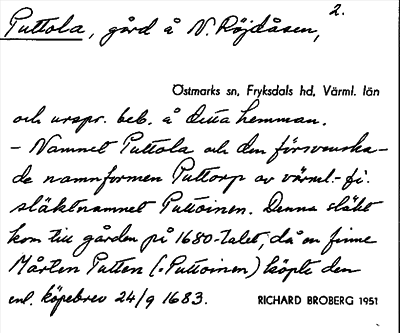 2.
Puttola, gård å N. Röjdåsen,
Östmarks sn, Fryksdals hd, Värml. län
och urspr. beb. å detta hemman.
– Namnet Puttola och den försvenska-
de namnformen Puttorp av värml.-fi.
släktnamnet Puttoinen. Denna släkt
kom till gården på 1680-talet, då en finne
Mårten Putten (: Puttoinen) köpte den
enl. köpebrev 24/9 1683.
RICHARD BROBERG 1951